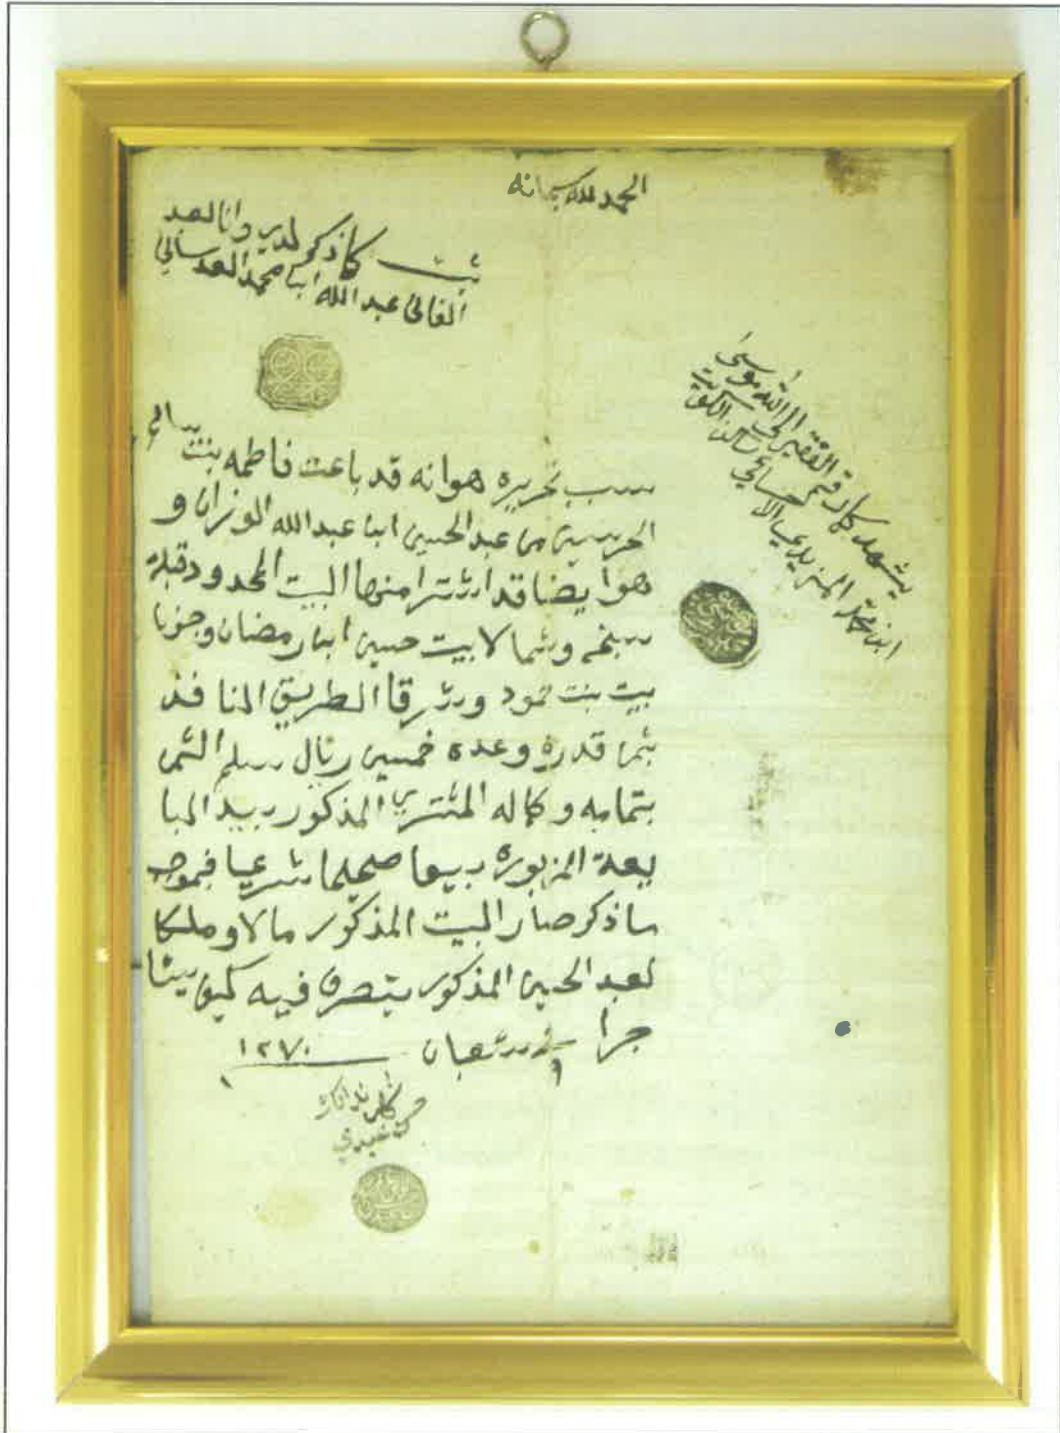 الحمد لله سبحانه
ثبت كما ذكر لدي وانا العبد
الفاني عبدالله ابن محمد العدساني
يشهد كما رقم الفقير الى الله موسى
ابن المزيدي الاحسائي ساكن الكويت
سبب تحريره هو انه قد باعت فاطمه بنت سالم
من عبدالحسين ابن عبدالله الوزان و
هو ايضا قد اشترا منها البيت المحدود قبلة
وشمالا بيت حسين ابن رمضان وجنوبا
بيت بنت حمود وشرقا الطريق النافذ
بثمن قدره وعده خمسين ريال سلم الثمن
بتمامه وكماله المشتري المذكور بيد المبا
يعة المزبوره بيعا صحيحا شرعيا فبموجب
ما ذكر صار البيت المذكور مالا وملكا
لعبد الحسين المذكور يتصرف فيه كيف يشا
جرا شعبان ١٢٧٠